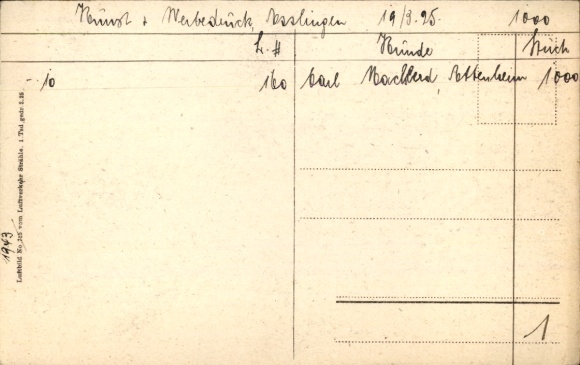 Kunst + Werbedruck, Esslingen 19/3.25. 1000
L. # Kunde Stück
10 160 Carl Ettenheim 1000
1943
Luftbild No. 245 vom Luftverkehr Strähle. 1 Tsd. gedr. 3.25
1